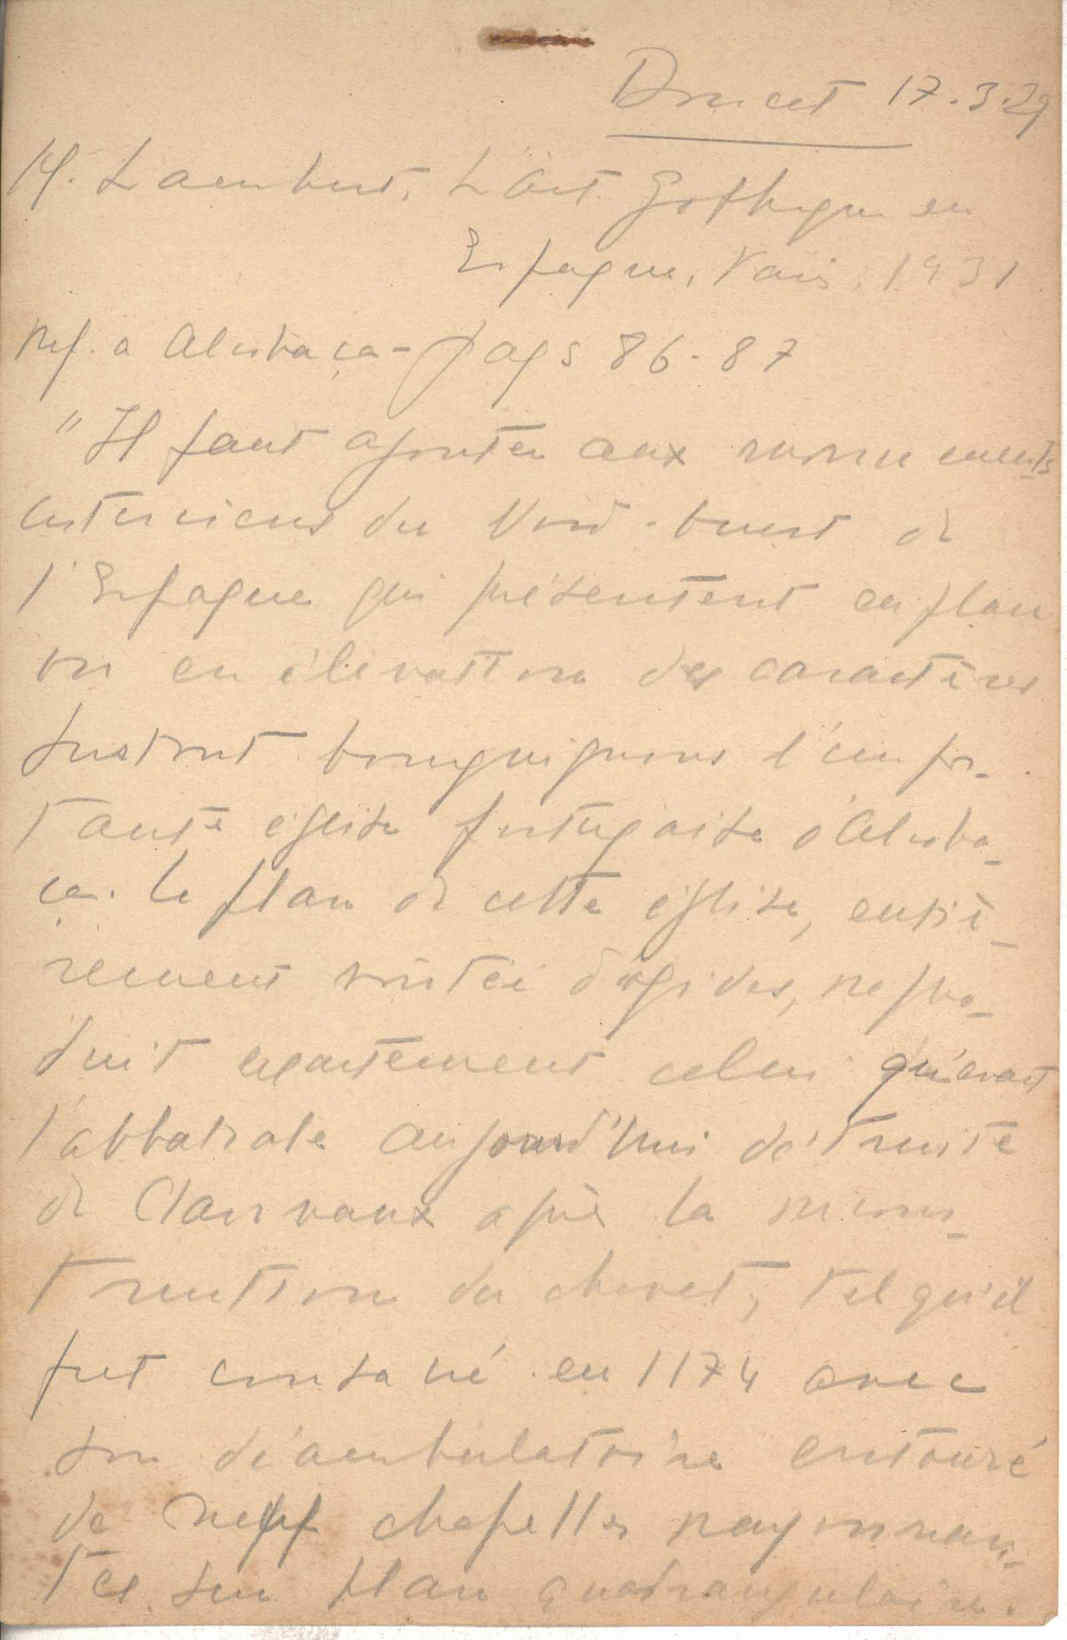 Doucet 17.3.39
M. Lambert, L'Art Gothique en
Espagne, Paris, 1931
Ref. a Alcobaça - pags 86-87
"Il faut ajouter aux monuments
cisterciens du Nord-Ouest de
l'Espagne qui présentent en plan
ou en élévation des caractères
surtout bourguignons l'impor-
tante église portugaise d'Alcoba-
ça. Le plan de cette église, entiè-
rement voûtée d'ogives, repro-
duit exactement celui qu'avait
l'abbatiale aujourd'hui détruite
de Clairvaux après la recons-
truction du chevet, tel qu'il
fut consacré en 1174 avec
son déambulatoire entouré
de neuf chapelles rayonnan-
tes sur plan quadrangulaire.